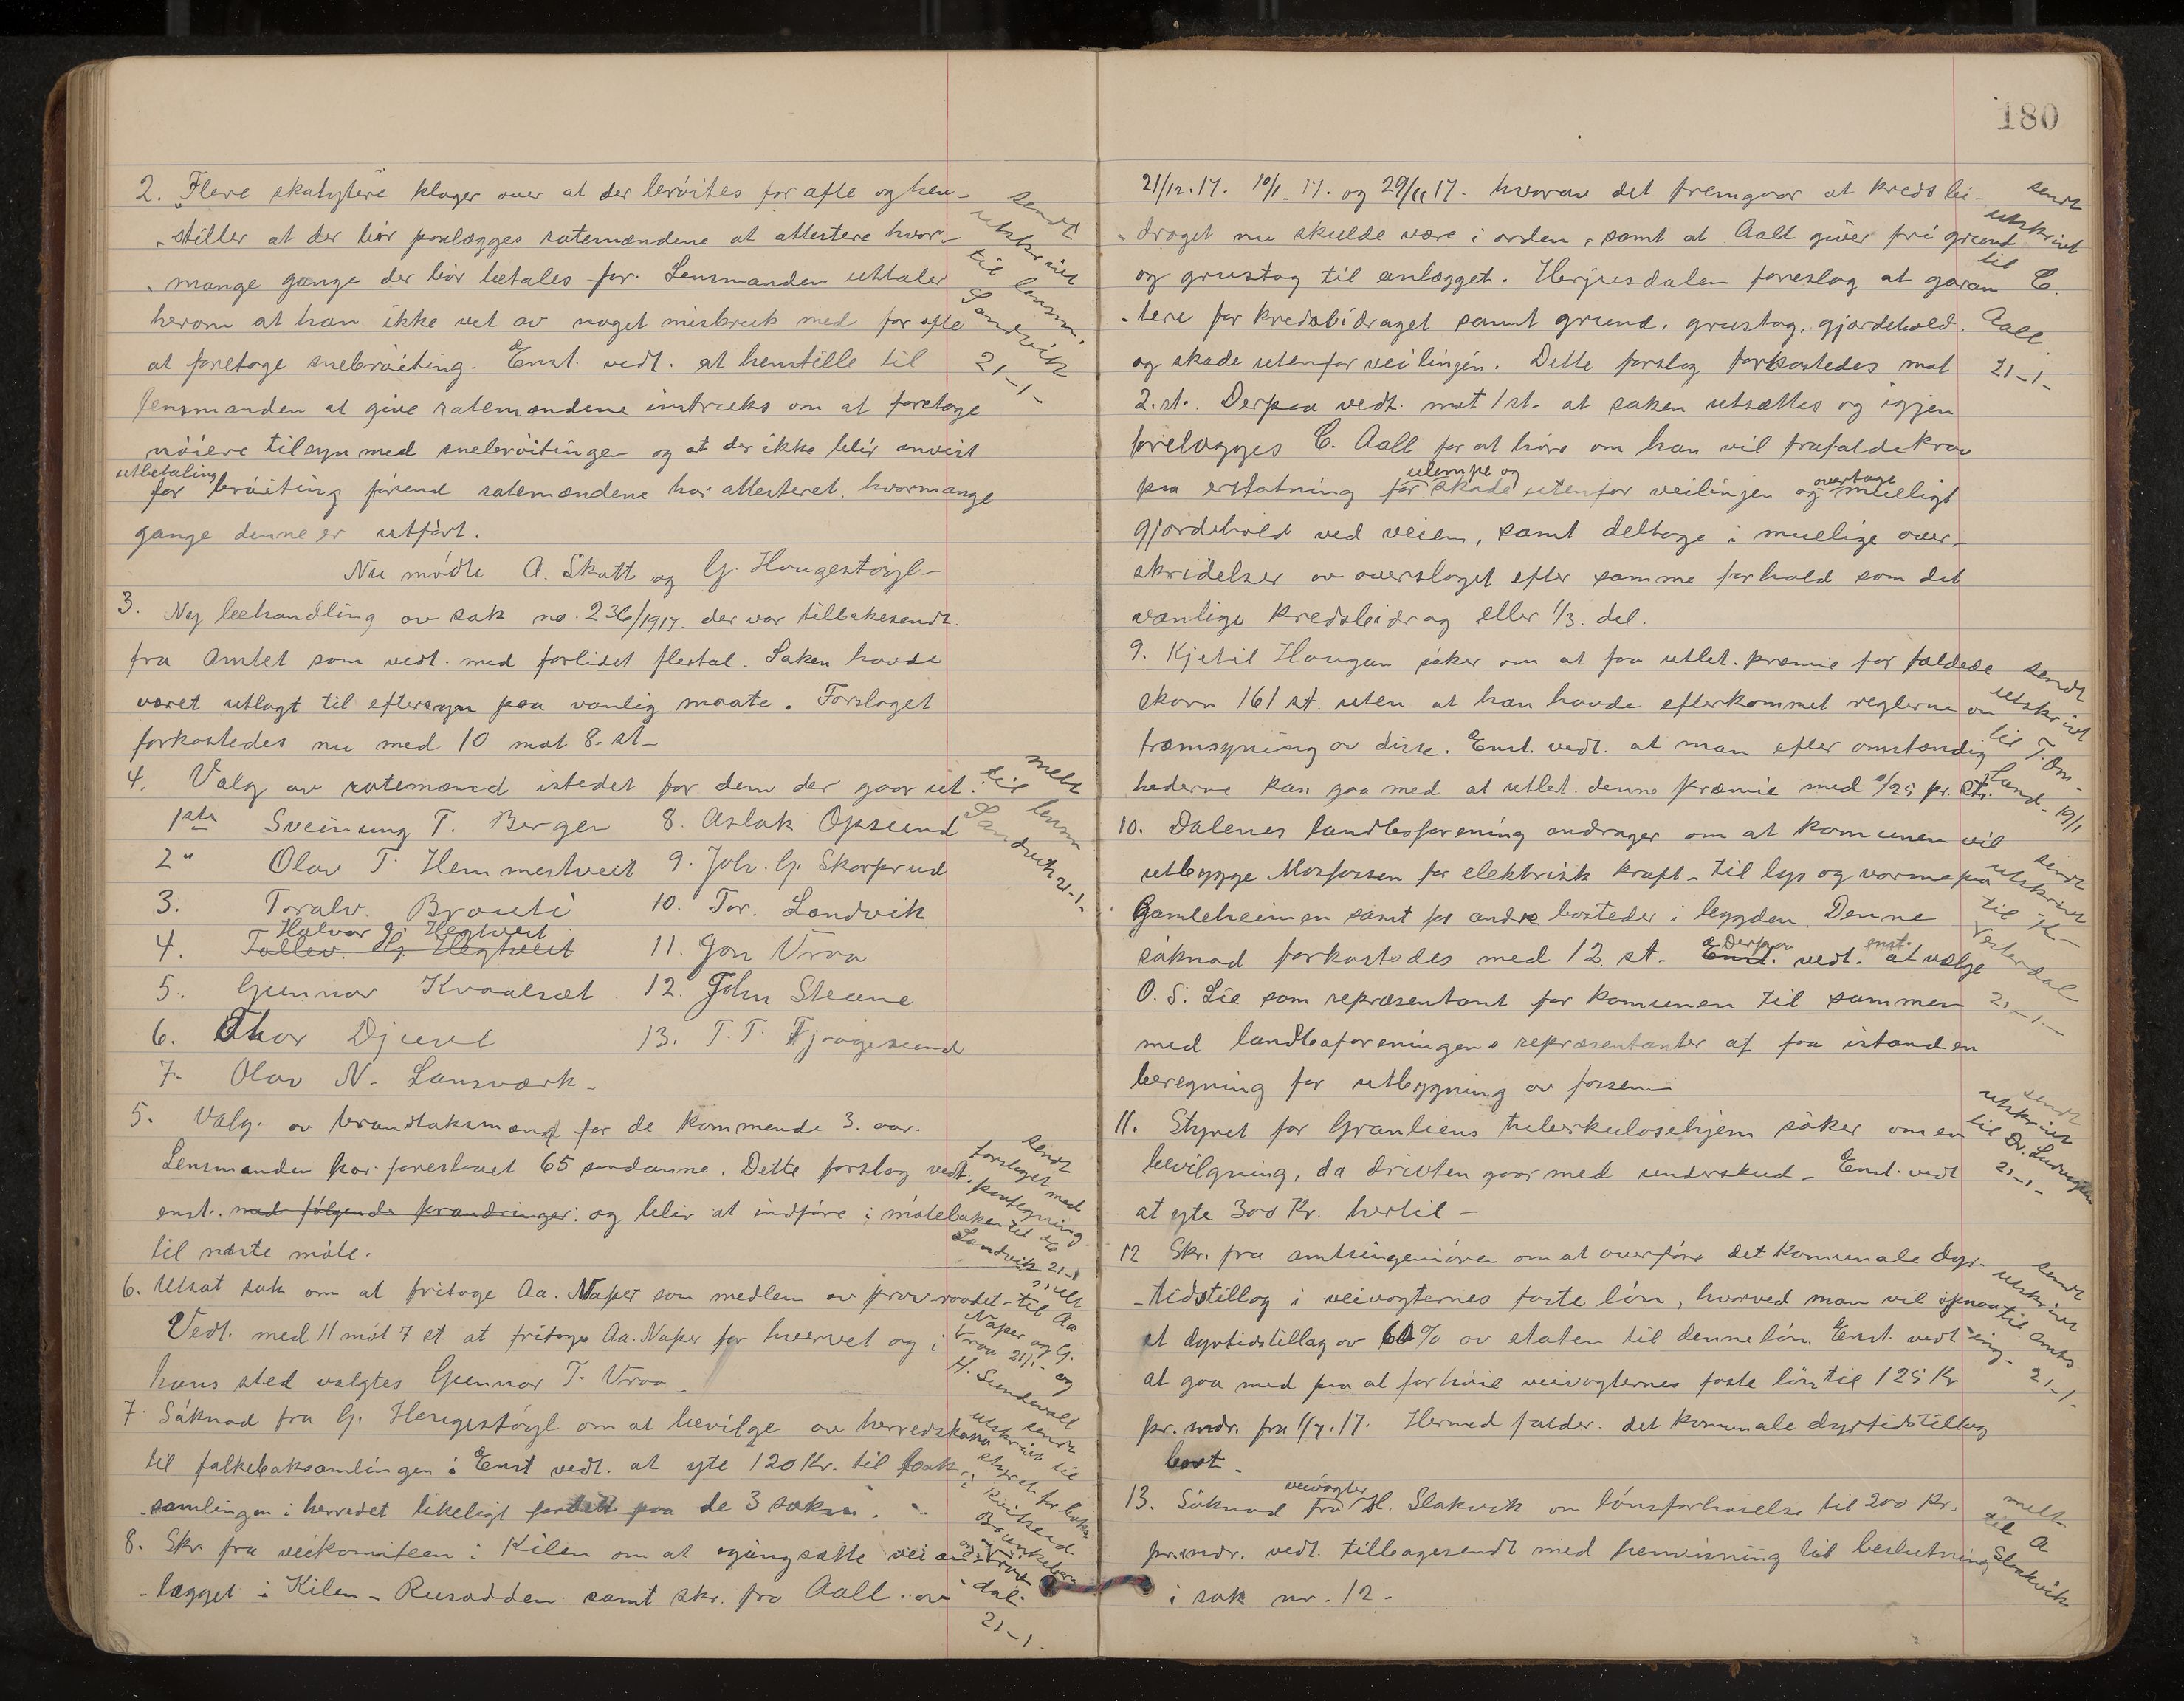 2. "Flere skatytere" klager over at der bröites for ofte og hen-
-stiller at der bör paalægges rotemændene at attestere hvor-
- mange gange der bör betales for. Lensmanden uttaler
herom at han ikke vet av noget misbruk med for ofte
at foretage snebröiting. Enst. vedt. at henstille til
lensmanden at give rotemændene instruks om at foretage
nöiere tilsyn med snebröitingen og at der ikke blir anvist
utbetaling
for bröiting förend rotemændene har attesteret, hvormange
gange denne er utfört.
Nu mödte A. Skatt og G. Haugestöyl-
3. Ny behandling av sak no. 236/1917. der var tilbakesendt.
fra Amtet som vedt. med forlidet flertal. Saken havde
været utlagt til eftersyn paa vanlig maate. Forslaget
forkastedes nu med 10 mot 8. st-
4. Valg av rotemænd istedet for dem der gaar ut.
1ste Sveinung T. Berge 8. Aslak Opsund
2" Olav T. Hemmestveit 9. Joh. G. Skarprud
3. Toralv. Brauti 10. Tor. Landvik
Halvor Gj. Hegtveit
4. Tallev. Hj. Hegtveit 11. Jon Vraa
5. Gunnar Kvaalsæt 12. John Steane
6. Thor Djuve 13. T. T. Fjaagesund
7. Olav N. Lansværk-
5. Valg. av brandtaksmænd for de kommende 3. aar.
Lensmanden har foreslaaet 65 saadanne. Dette forslag vedt.
enst. med fölgende forandringer: og blir at indföre i möteboken
til næste möte.
6. Utsat sak om at fritage Aa. Naper som medlem av provraadet-
Vedt. med 11 mot 7 st. at fritage Aa. Naper for hvervet og i
hans sted valgtes Gunnar T. Vraa-
7. Söknad fra G. Haugestöyl om at bevilge av herredskassa
til falkeboksamlingen: Enst vedt. at yte 120 Kr. til bok
-samlingen i herredet likeligt fordelt paa de 3 sokn.
8. Skr fra veikomiteen i Kilen om at igangsætte veian-
-lægget i Kilen - Rusodden samt skr. fra Aall av
sendt
utskrivt
til lensm.
Landvik
21-1-
meldt
til lensm
Landvik 21-1-
sendt
forslaget med
paategning
til
Landvik 21-1
meldt
til Aa
Naper og G.
Vraa 21/1- og
H. Sundevall
sendt
utskrivt til
styret for boks.
i Kviteseid
Brunkeberg
og Vraa-
dal.
21-1.
180
21/12.17. 10/1.17. og 29/11 17. hvorav det fremgaar at kredsbi-
-draget nu skulde være i orden, samt at Aall giver fri grund
og grustag til anlægget. Herjusdalen foreslog at garan
-tere for kredsbidraget samt grund, grustag, gjærdehold.
og skade utenfor veilinjen. Dette forslag forkastedes mot
2. st. Derpaa vedt. mot 1 st. at saken utsættes og igjen
forelægges C. Aall for at höre om han vil frafalde krav
ulempe og overtage
paa erstatning for skade utenfor veilinjen og mueligt
gjærdehold ved veien, samt deltage i muelige over-
skridelser av overslaget efter samme forhold som det
vanlige kredsbidrag eller 1/3. del.
9. Kjetil Haugan söker om at faa utbet. præmie for fældede
skorn 161 st. uten at han havde efterkommet reglerne om
fræmsyning av disse. Enst. vedt. at man efter omstændig
hederne kan gaa med at utbet. denne præmie med 0/25 pr. st.
10. Dalenes landboforening andrager om at komunen vil
utbygge Mosfossen for elektrisk kraft- til lys og varme paa
Gamleheimen samt for andre bosteder i bygden. Denne
Derpaa enst.
söknad forkastedes med 12. st- Enst. vedt. at vælge
O. S. Lie som repræsentant for komunen til sammen
med landboforeningens repræsentanter at faa istanden
beregning for utbygning av fossen
11. Styret for Granliens tuberkulosehjem söker om en
bevilgning, da driften gaar med underskud- Enst. vedt
at yte 300 Kr. hertil-
12 Skr. fra amtsingeniören om at overföre det komunale dyr-
-tidstillæg i veivogternes faste lön, hvorved man vil opnaa
et dyrtidstillæg av 60% av staten til denne lön. Enst. vedt
at gaa med paa at forhöie veivogternes faste lön til 125 Kr
pr. mdr. fra 1/7.17. Hermed falder. det komunale dyrtidstillæg
bort.
veivogter
13. Söknad fra A. Slakvik om lönsforhöielse til 200 Kr.
pr. mdr. vedt. tilbagesendt med henvisning til beslutning
i sak nr. 12-
sendt
utskrivt
til
C.
Aall
21-1-
sendt
utskrivt
til T. Om-
Land- 19/1
sendt
utskrivt
til H-
Vesterdal
21-1-
sendt
utskrivt
til Dr. Ludvigsen
21-1-
sendt
utskrivt
til amts
ing-
21-1.
meldt
til A
Slakvik